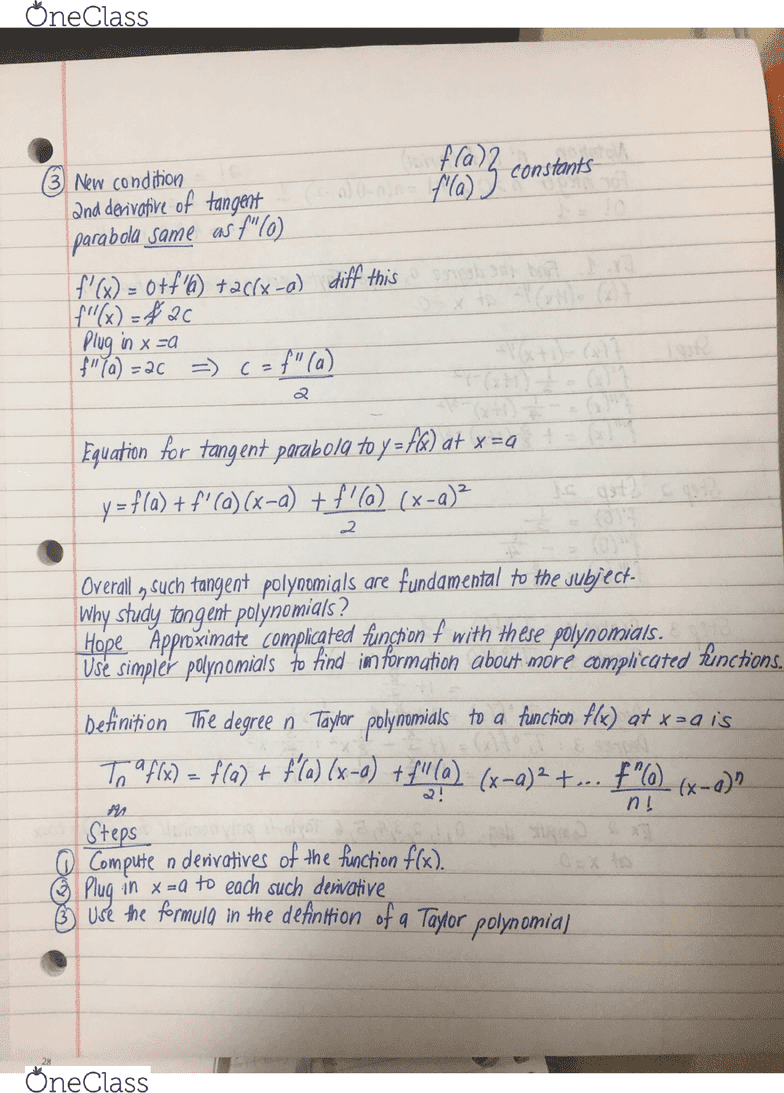 OneClass
f(a) } constants
f'(a)
③ New condition
2nd derivative of tangent
parabola same as f"(a)
f'(x) = 0+f'(a) +2c(x-a) diff this
f"(x) = 2c
Plug in x =a
f"(a) =2c => c = f"(a)
2
Equation for tangent parabola to y=f(x) at x=a
y=f(a)+f'(a)(x-a) + f'(a) (x-a)²
2
Overall, such tangent polynomials are fundamental to the subject.
Why study tangent polynomials?
Hope Approximate complicated function f with these polynomials.
Use simpler polynomials to find imformation about more complicated functions.
Definition The degree n Taylor polynomials to a function f(x) at x=a is
Tₙᵃf(x) = f(a) + f'(a)(x-a) + f"(a) (x-a)² +... fⁿ(a) (x-a)ⁿ
2! n!
Steps
① Compute n derivatives of the function f(x).
② Plug in x=a to each such derivative
③ Use the formula in the definition of a Taylor polynomial
28
OneClass